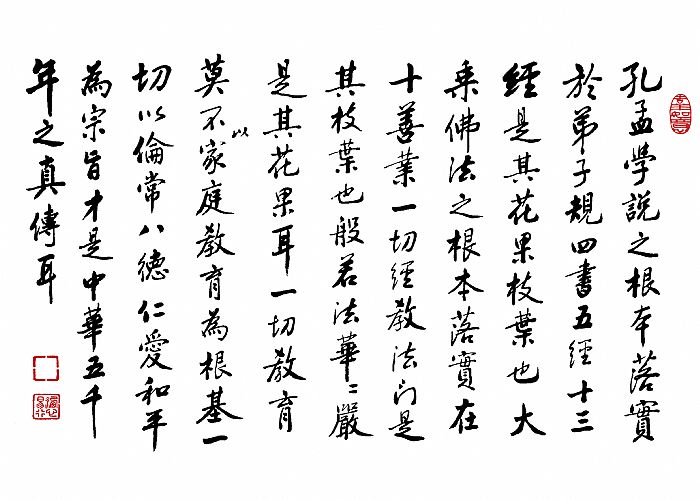 孔孟學說之根本落實
於弟子規四書五經十三
經是其花果枝葉也大
乘佛法之根本落實在
十善業一切經教法門是
其枝葉也般若法華゠嚴
是其花果耳一切教育
莫不以家庭教育為根基一
切以倫常八德仁愛和平
為宗旨才是中華五千
年之真傳耳